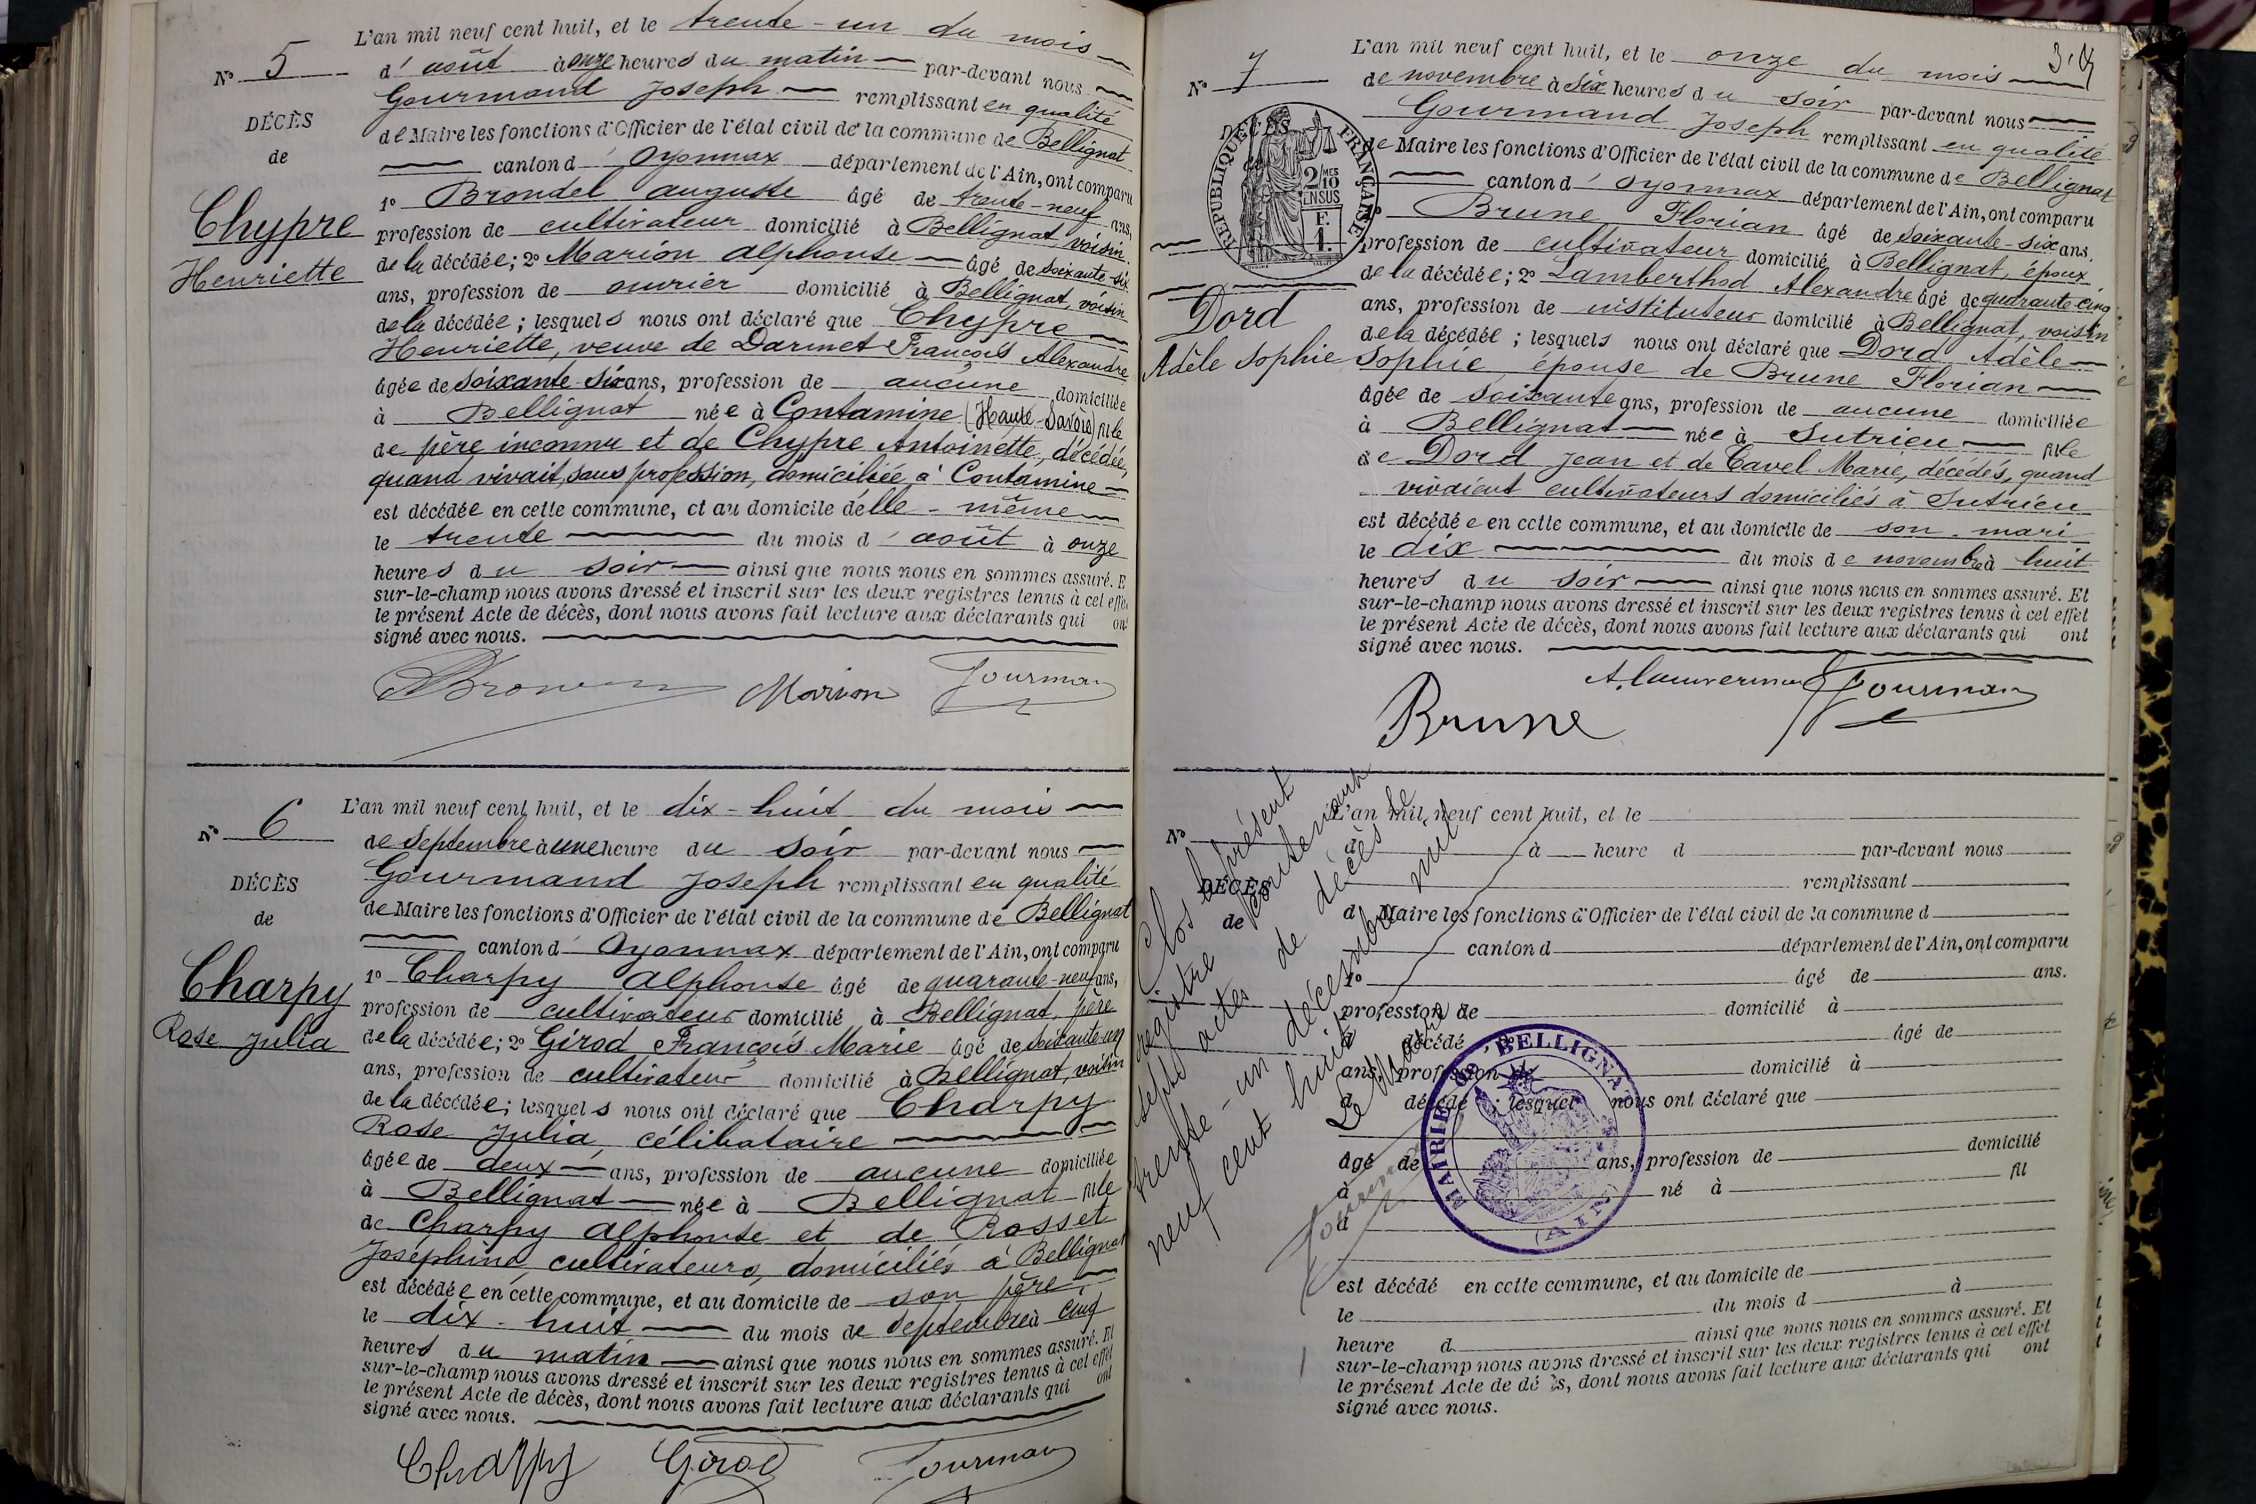 N° 5
DÉCÈS
de
Chypre
Henriette
L'an mil neuf cent huit, et le trente-un du mois
d'août à onze heures du matin par-devant nous
Gourmand Joseph remplissant en qualité
de Maire les fonctions d'Officier de l'état civil de la commune de Bellignat
canton d'Oyonnax département de l'Ain, ont comparu
1° Brondel Auguste âgé de trente-neuf ans,
profession de cultivateur domicilié à Bellignat voisin
de la décédée; 2° Marion Alphonse âgé de soixante-six
ans, profession de ouvrier domicilié à Bellignat, voisin
de la décédée; lesquels nous ont déclaré que Chypre
Henriette, veuve de Darmet François Alexandre
âgée de soixante-six ans, profession de aucune domiciliée
à Bellignat née à Contamine (Haute-Savoie) fille
de père inconnu et de Chypre Antoinette, décédée,
quand vivait, sans profession, domiciliée à Contamine
est décédée en cette commune, et au domicile d'elle-même
le trente du mois d'août à onze
heures du soir ainsi que nous nous en sommes assuré. E
sur-le-champ nous avons dressé et inscrit sur les deux registres tenus à cet effet
le présent Acte de décès, dont nous avons fait lecture aux déclarants qui ont
signé avec nous.
Marion Gourman
N° 6
DÉCÈS
de
Charpy
Rose Julia
L'an mil neuf cent huit, et le dix-huit du mois
de septembre à une heure du soir par-devant nous
Gourmand Joseph remplissant en qualité
de Maire les fonctions d'Officier de l'état civil de la commune de Bellignat
canton d'Oyonnax département de l'Ain, ont comparu
1° Charpy Alphonse âgé de quarante-neuf ans,
profession de cultivateur domicilié à Bellignat, père
de la décédée; 2° Girod François Marie âgé de soixante-un
ans, profession de cultivateur domicilié à Bellignat, voisin
de la décédée; lesquels nous ont déclaré que Charpy
Rose Julia, célibataire
âgée de deux ans, profession de aucune domiciliée
à Bellignat née à Bellignat fille
de Charpy Alphonse et de Rosset
Joséphine, cultivateurs, domiciliés à Bellignat
est décédée en cette commune, et au domicile de son père
le dix-huit du mois de septembre à cinq
heures du matin ainsi que nous nous en sommes assuré. Et
sur-le-champ nous avons dressé et inscrit sur les deux registres tenus à cet effet
le présent Acte de décès, dont nous avons fait lecture aux déclarants qui ont
signé avec nous.
Charpy Girod Gourman
N° 7
DÉCÈS
RÉPUBLIQUE FRANÇAISE
2/10 MES
EN SUS
F.
1.
Dord
Adèle Sophie
L'an mil neuf cent huit, et le onze du mois
de novembre à six heures du soir par-devant nous
Gourmand Joseph remplissant en qualité
de Maire les fonctions d'Officier de l'état civil de la commune de Bellignat
canton d'Oyonnax département de l'Ain, ont comparu
Brune Florian âgé de soixante-six ans.
profession de cultivateur domicilié à Bellignat, époux
de la décédée; 2° Lamberthod Alexandre âgé de quarante-cinq
ans, profession de instituteur domicilié à Bellignat, voisin
de la décédée; lesquels nous ont déclaré que Dord Adèle
Sophie épouse de Brune Florian
âgée de soixante ans, profession de aucune domiciliée
à Bellignat née à Sutrieu fille
de Dord Jean et de Cavel Marie, décédés, quand
vivaient cultivateurs domiciliés à Sutrieu
est décédée en cette commune, et au domicile de son mari
le dix du mois de novembre à huit
heures du soir ainsi que nous nous en sommes assuré. Et
sur-le-champ nous avons dressé et inscrit sur les deux registres tenus à cet effet
le présent Acte de décès, dont nous avons fait lecture aux déclarants qui ont
signé avec nous.
Gourman
Brune
N°
DÉCÈS
de
L'an mil neuf cent huit, et le
d à heure d par-devant nous
remplissant
d Maire les fonctions d'Officier de l'état civil de la commune d
canton d département de l'Ain, ont comparu
1° âgé de ans.
profession de domicilié à
d décédé 2° âgé de
ans, profession de domicilié à
d décédé ; lesquel nous ont déclaré que
âgé de ans, profession de domicilié
à né à fil
d
est décédé en cette commune, et au domicile de
le du mois d à
heure d ainsi que nous nous en sommes assuré. Et
sur-le-champ nous avons dressé et inscrit sur les deux registres tenus à cet effet
le présent Acte de décès, dont nous avons fait lecture aux déclarants qui ont
signé avec nous.
Clos le présent
registre contenant
sept actes de décès le
trente-un décembre mil
neuf cent huit
Le Maire
Gourman
MAIRIE DE BELLIGNAT
(AIN)